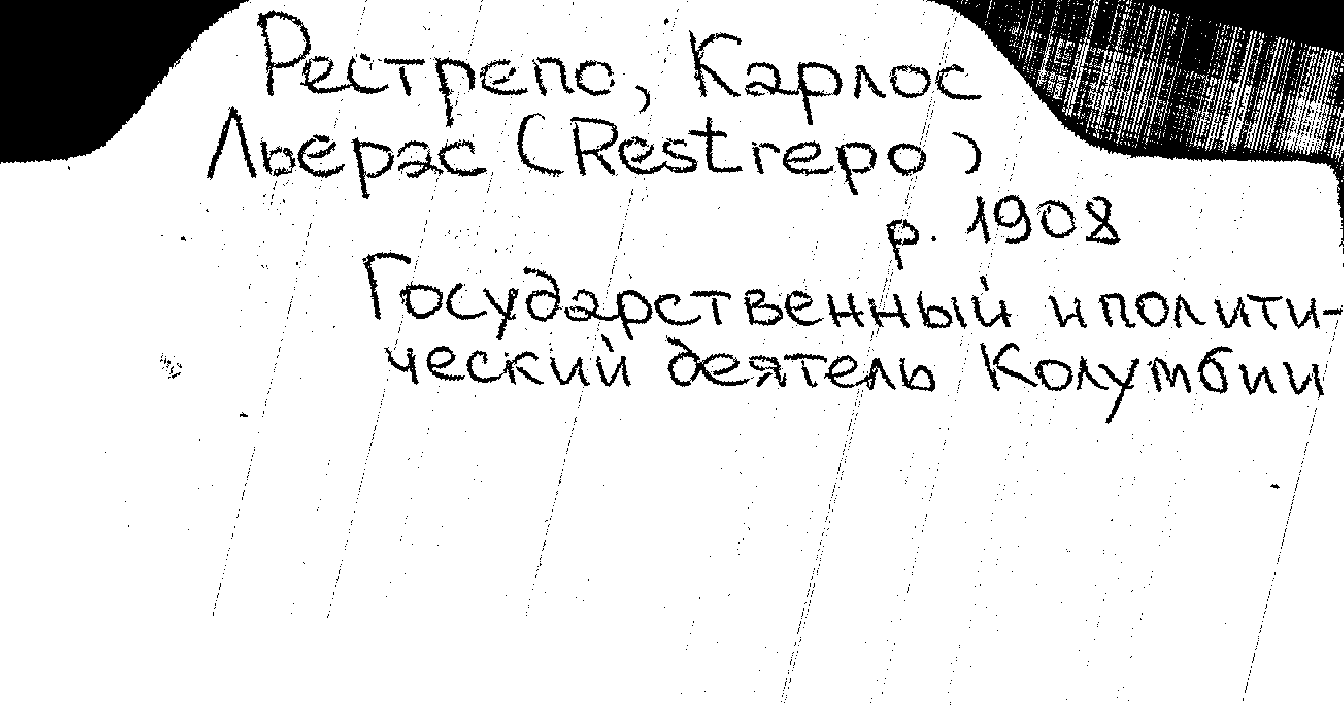 Рестрепо, Карлос
Льерас (Restrepo)
р. 1908
Государственный и полити-
ческий деятель Колумбии